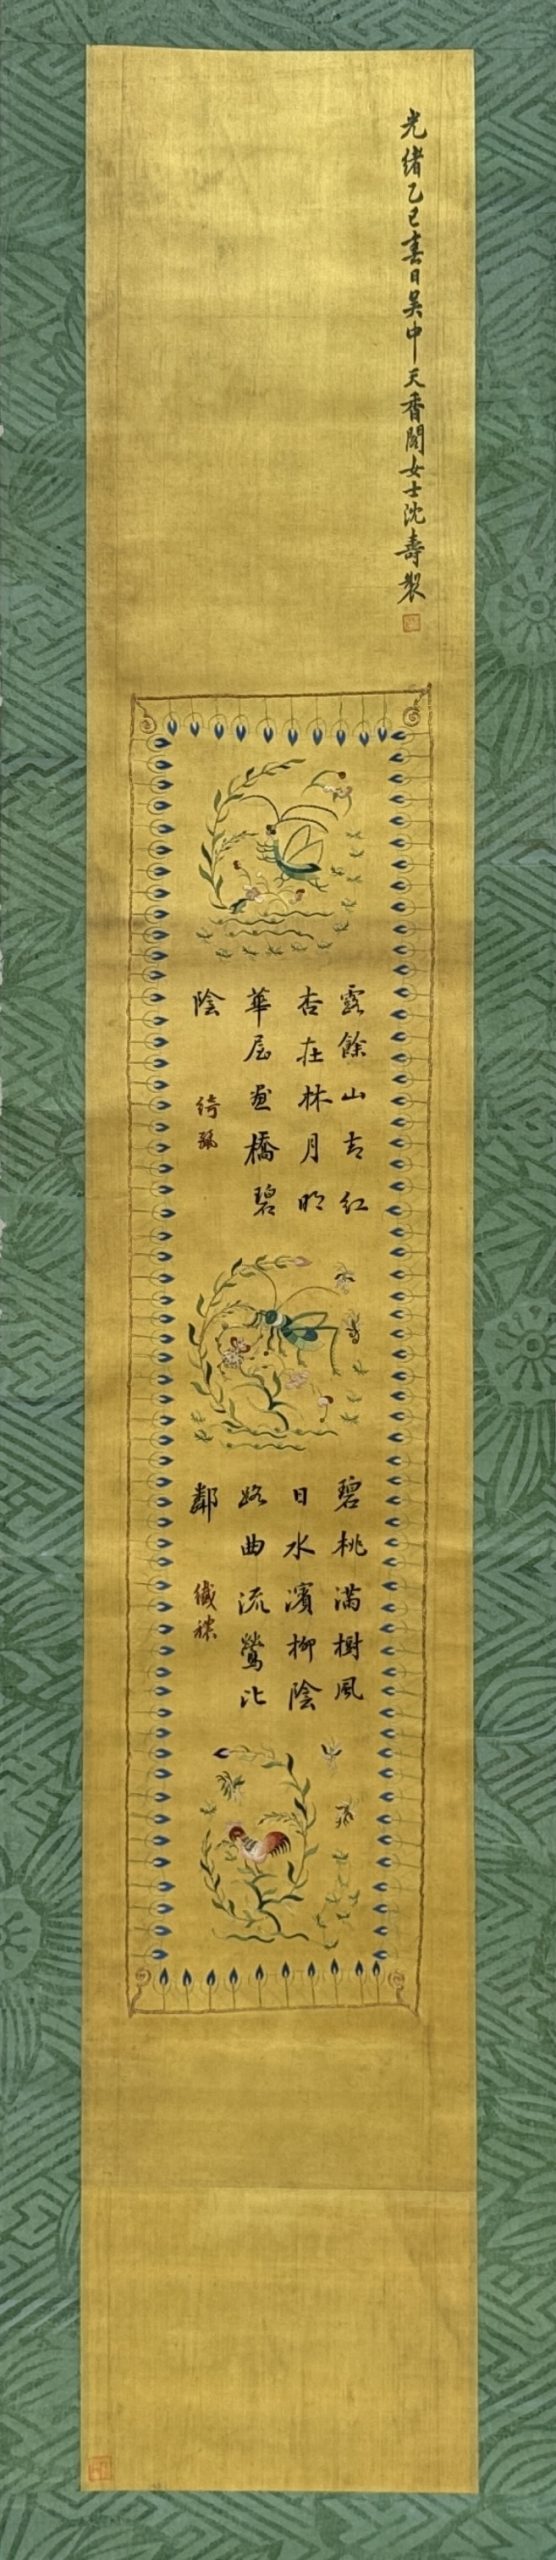 光緒乙巳春日吳中天香閣女士沈壽製
露餘山青紅
杏在林月明
華屋畫橋碧
陰
綺麗
碧桃滿樹風
日水濱柳陰
路曲流鶯比
鄰
纖穠